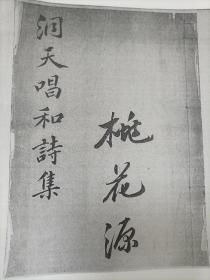 桃花源
洞天唱和詩集